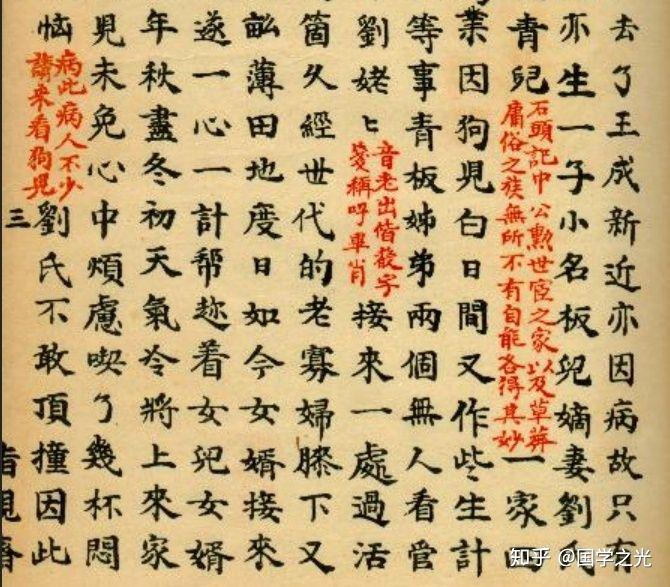 去了王成新近亦因病故只有
亦生一子小名板兒嫡妻劉
青兒
石頭記中公勲世宦之家以及草莽
庸俗之族無所不有自能各得其妙
一家四
業因狗児白日間又作些生計
等事青板姊弟兩個無人看管
劉姥〻
音老出偕聲字
箋稱呼畢肖
接來一處過活
箇久經世代的老寡婦膝下又
畝薄田地度日如今女婿接來
遂一心一計幇趂着女兒女婿
年秋盡冬初天氣冷將上來家
見未免心中煩慮喫了幾杯悶
惱
病此病人不少
請来看狗児
劉氏不敢頂撞因此
三
知乎 @国学之光